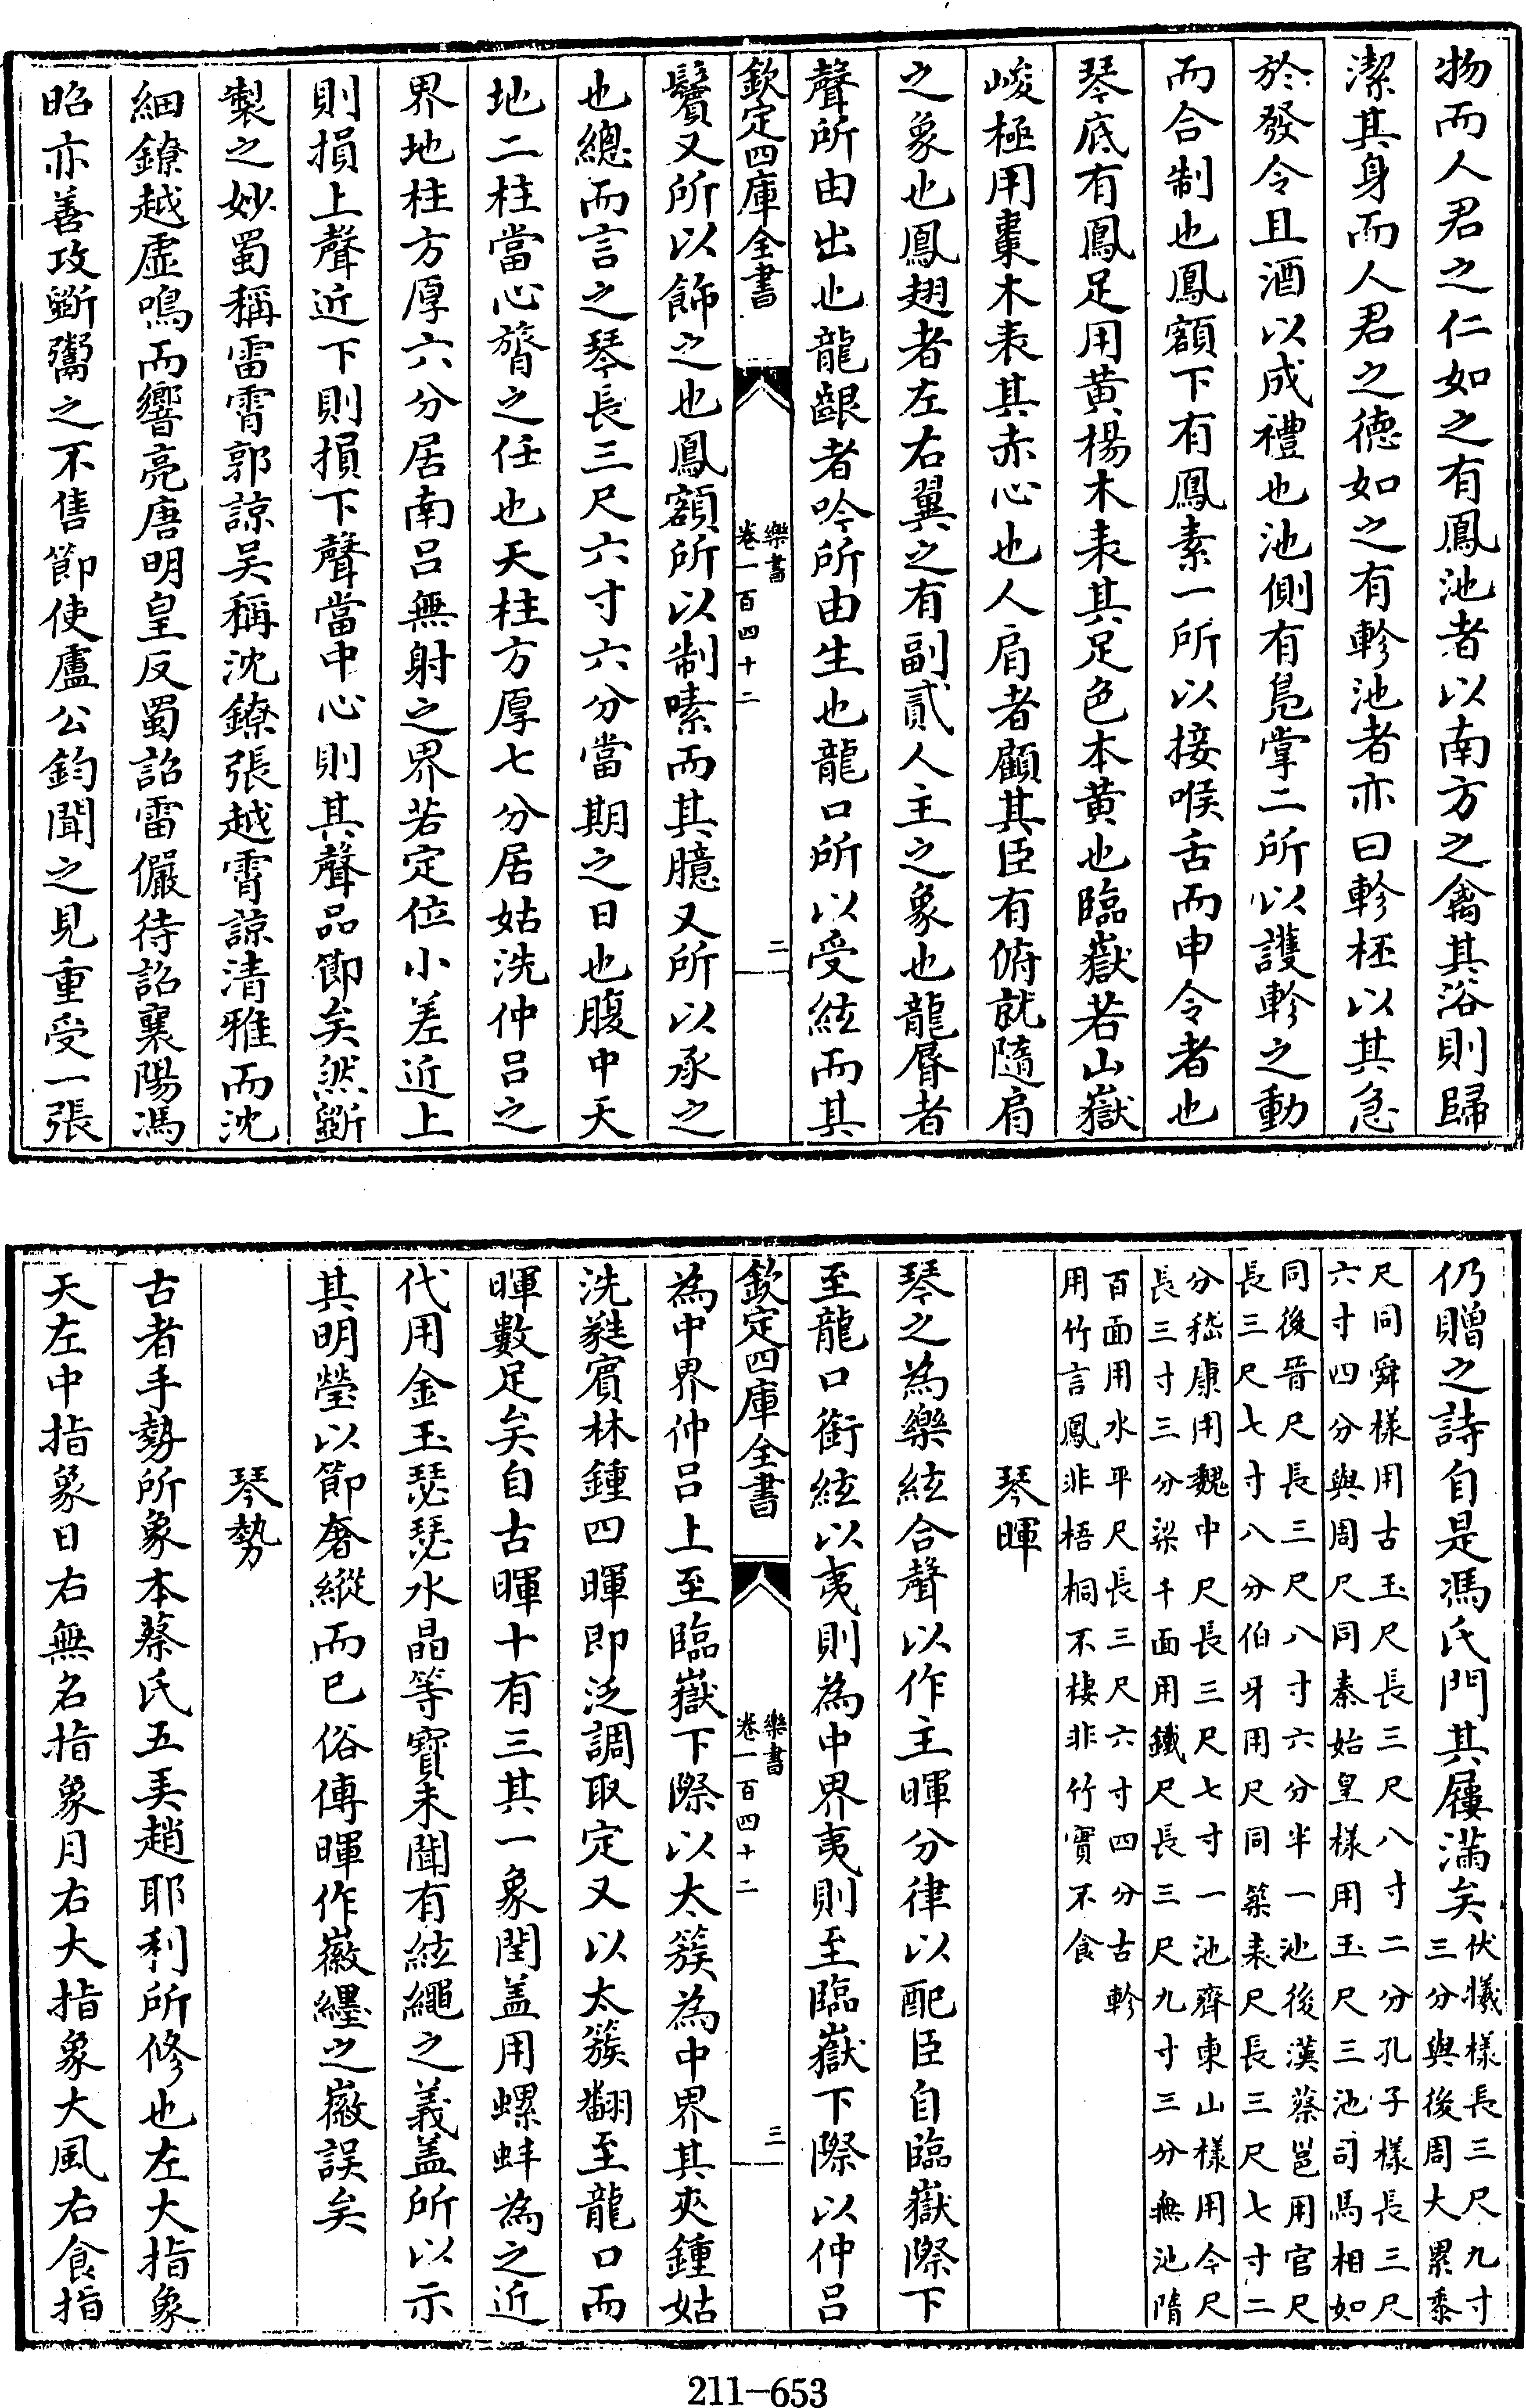 物而人君之仁如之有鳳池者以南方之禽其浴則歸
潔其身而人君之德如之有軫池者亦曰軫杯以其急
於發令且酒以成禮也池側有鳧掌二所以護軫之動
而合制也鳳額下有鳳素一所以接喉舌而申令者也
琴底有鳳足用黄楊木表其足色本黄也臨嶽若山嶽
峻極用棗木表其赤心也人肩者顧其臣有俯就隨肩
之象也鳳翅者左右翼之有副貳人主之象也龍脣者
聲所由出也龍齦者吟所由生也龍口所以受絃而其
欽定四庫全書
樂書
卷一百四十二
二
鬢又所以飾之也鳳額所以制嗉而其臆又所以承之
也總而言之琴長三尺六寸六分當期之日也腹中天
地二柱當心膂之任也天柱方厚七分居姑洗仲吕之
界地柱方厚六分居南吕無射之界若定位小差近上
則損上聲近下則損下聲當中心則其聲品節矣然斲
製之妙蜀稱雷霄郭諒吴稱沈鐐張越霄諒清雅而沈
細鐐越虚鳴而響亮唐明皇反蜀詔雷儼待詔襄陽馮
昭亦善攻斲鬻之不售節使盧公鈞聞之見重受一張
仍贈之詩自是馮氏門其屨滿矣
伏犧樣長三尺九寸
三分與後周大累黍
尺同舜樣用古玉尺長三尺八寸二分孔子樣長三尺
六寸四分與周尺同秦始皇樣用玉尺三池司馬相如
同後晉尺長三尺八寸六分半一池後漢蔡邕用官尺
長三尺七寸八分伯牙用尺同築表尺長三尺七寸二
分嵇康用魏中尺長三尺七寸一池齊東山樣用今尺
長三寸三分梁千面用鐵尺長三尺九寸三分無池隋
百面用水平尺長三尺六寸四分古軫
用竹言鳳非梧桐不棲非竹實不食
琴暉
琴之為樂絃合聲以作主暉分律以配臣自臨嶽際下
至龍口銜絃以夷則為中界夷則至臨嶽下際以仲吕
欽定四庫全書
樂書
卷一百四十二
三
為中界仲吕上至臨嶽下際以太簇為中界其夾鍾姑
洗蕤賓林鍾四暉即泛調取定又以太簇翻至龍口而
暉數足矣自古暉十有三其一象閏盖用螺蚌為之近
代用金玉瑟瑟水晶等寶未聞有絃繩之義盖所以示
其明瑩以節奢縱而已俗傳暉作徽纆之徽誤矣
琴勢
古者手勢所象本蔡氏五弄趙耶利所修也左大指象
天左中指象日右無名指象月右大指象大風右食指
211—653